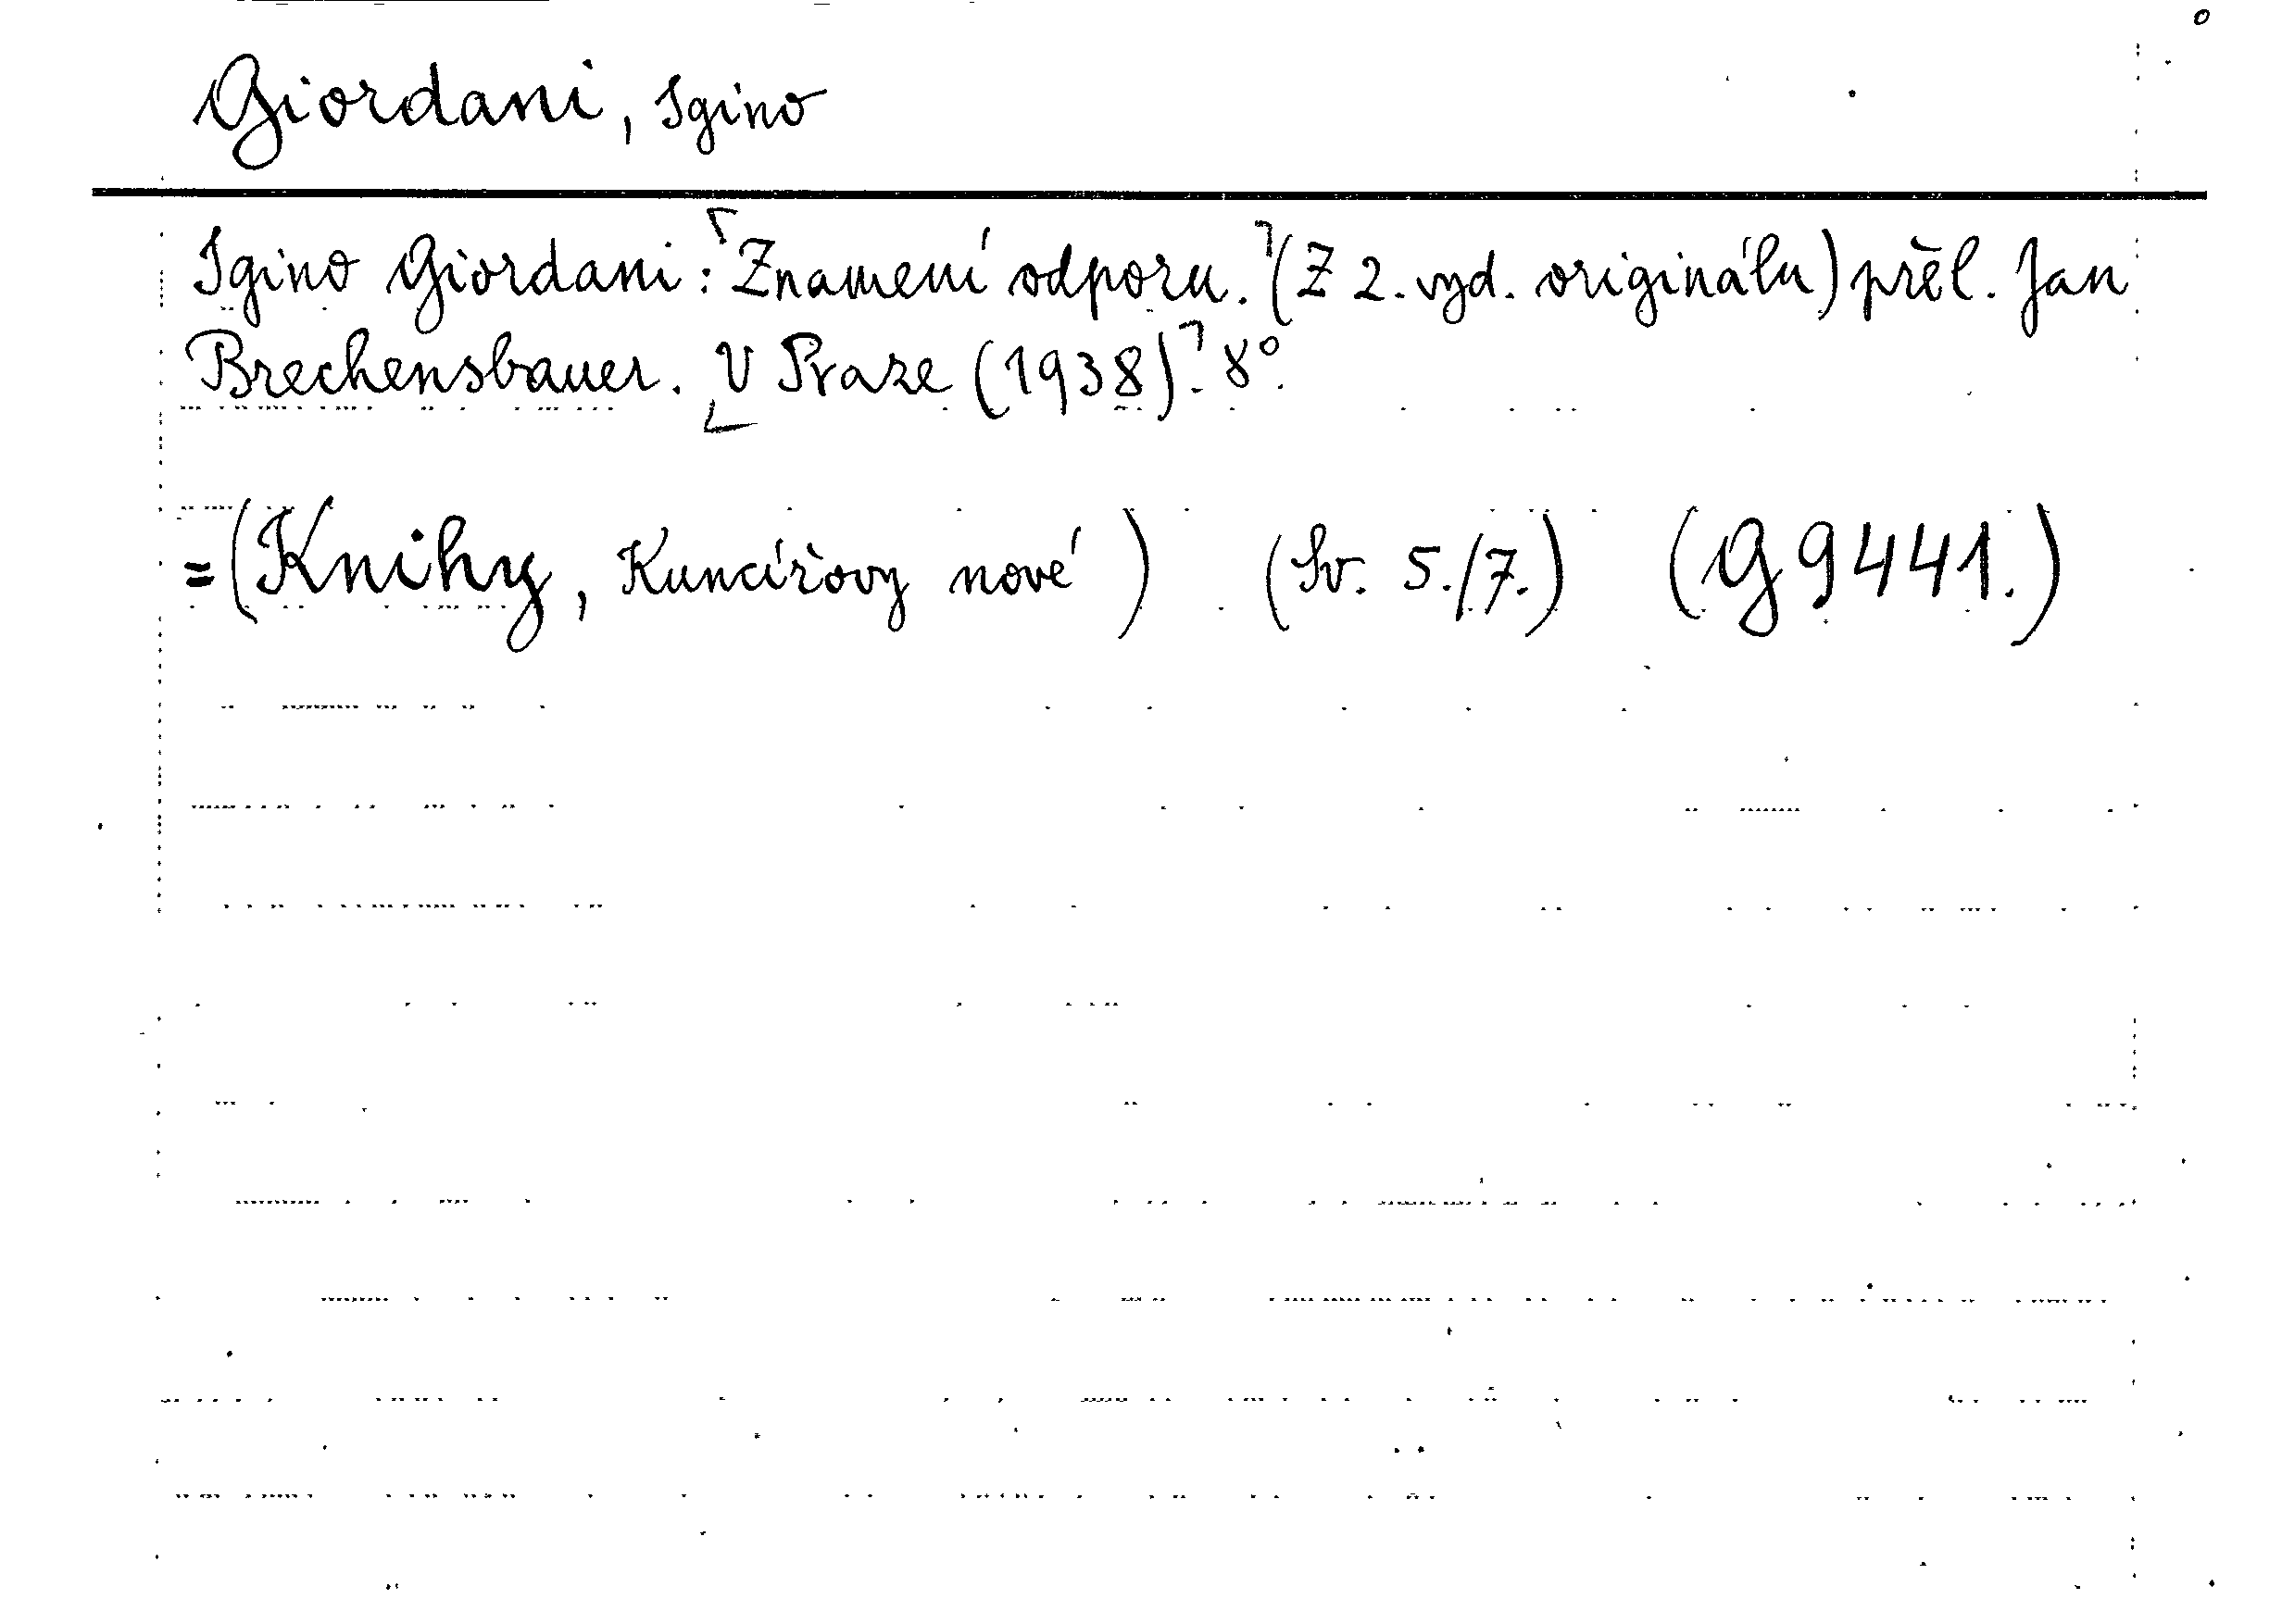 Giordani, Igino
Igino Giordani: ⌜Znamení odporu.⌝ (Z 2. vyd. originálu) přel. Jan
Brechensbauer. ⌞V Praze (1938)⌝. 8°.
=(Knihy, Kuncířovy nové) (Sv. 5./7.) (G 9441.)